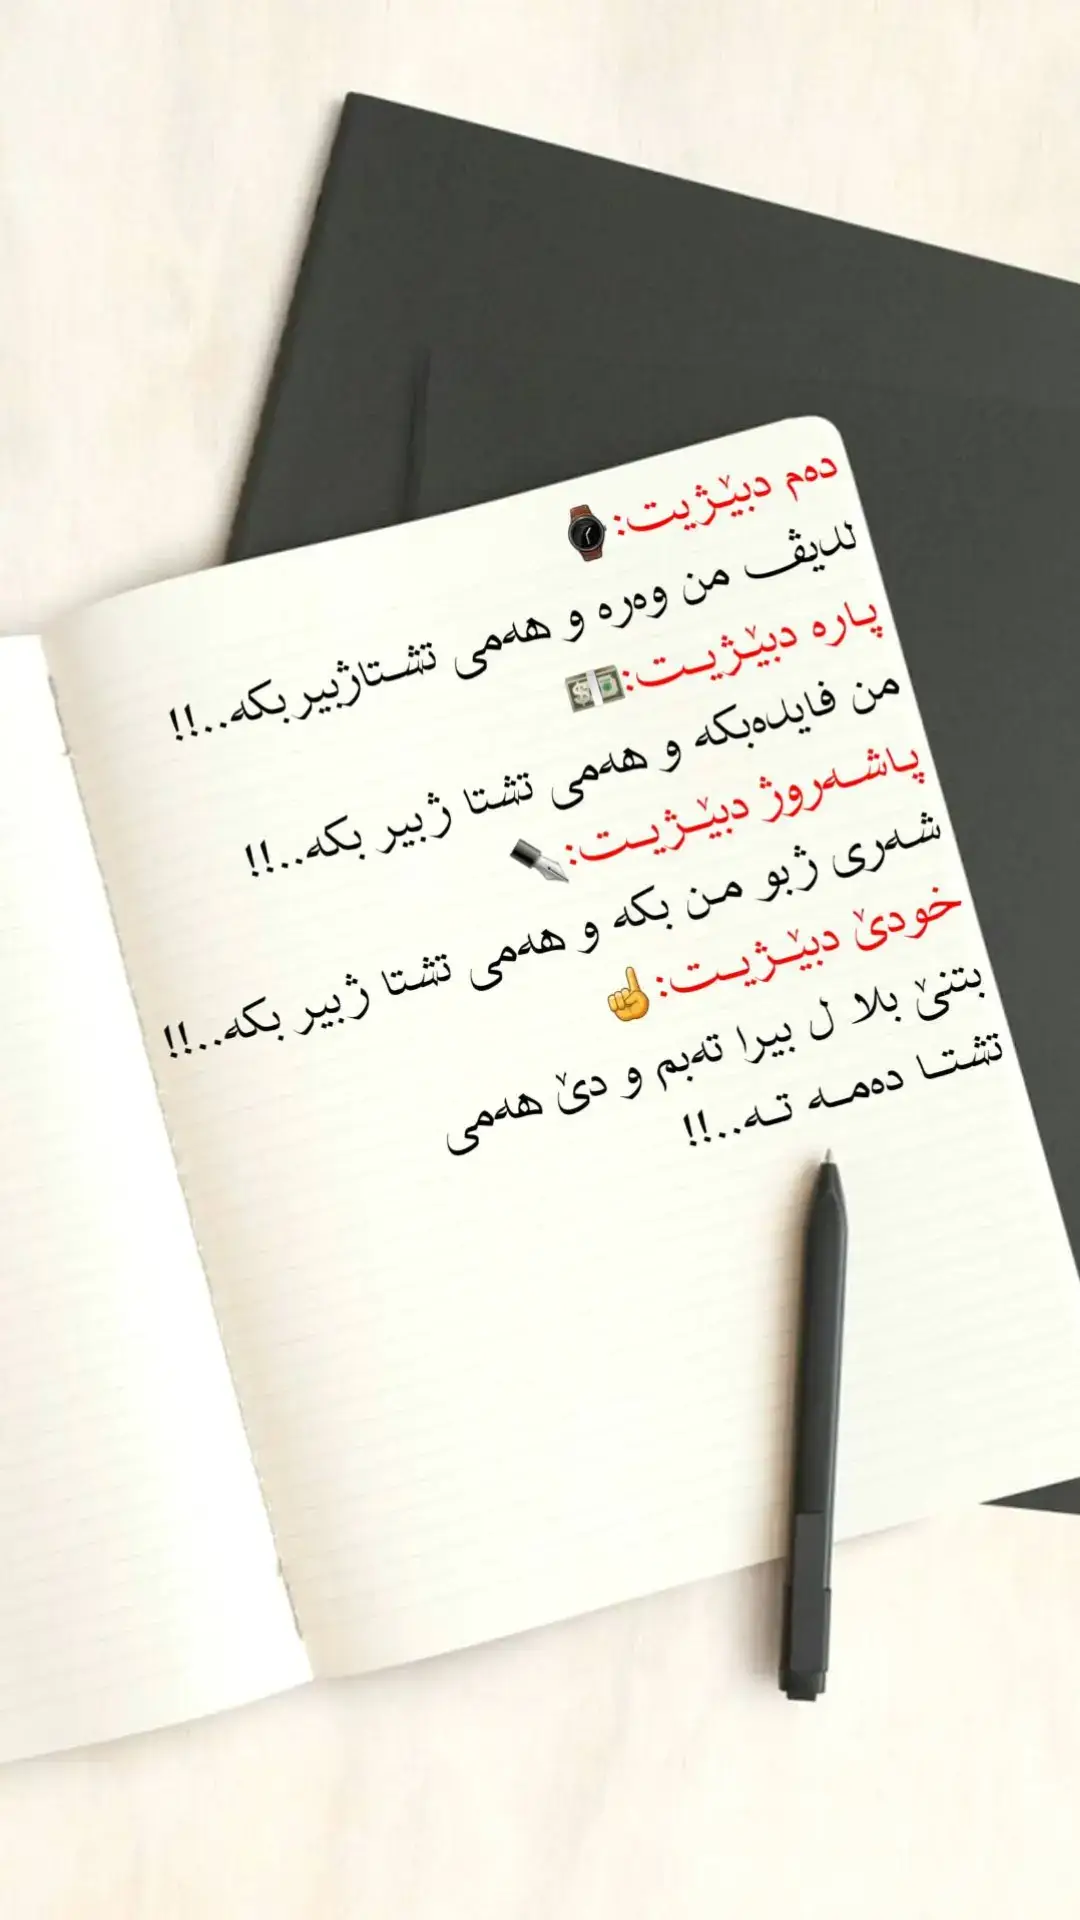 دەم دبێژیت:⌚
لدیڤ من وەرە و هەمی تشتاژبیربکە..!!
پارە دبێژیت:💵
من فایدەبکە و هەمی تشتا ژبیر بکە..!!
پاشەروژ دبێژیت:✒
شەری ژبو من بکە و هەمی تشتا ژبیر بکە..!!
خودێ دبێژیت:☝
بتنێ بلا ل بیرا تەبم و دێ هەمی
تشتا دەمە تە..!!